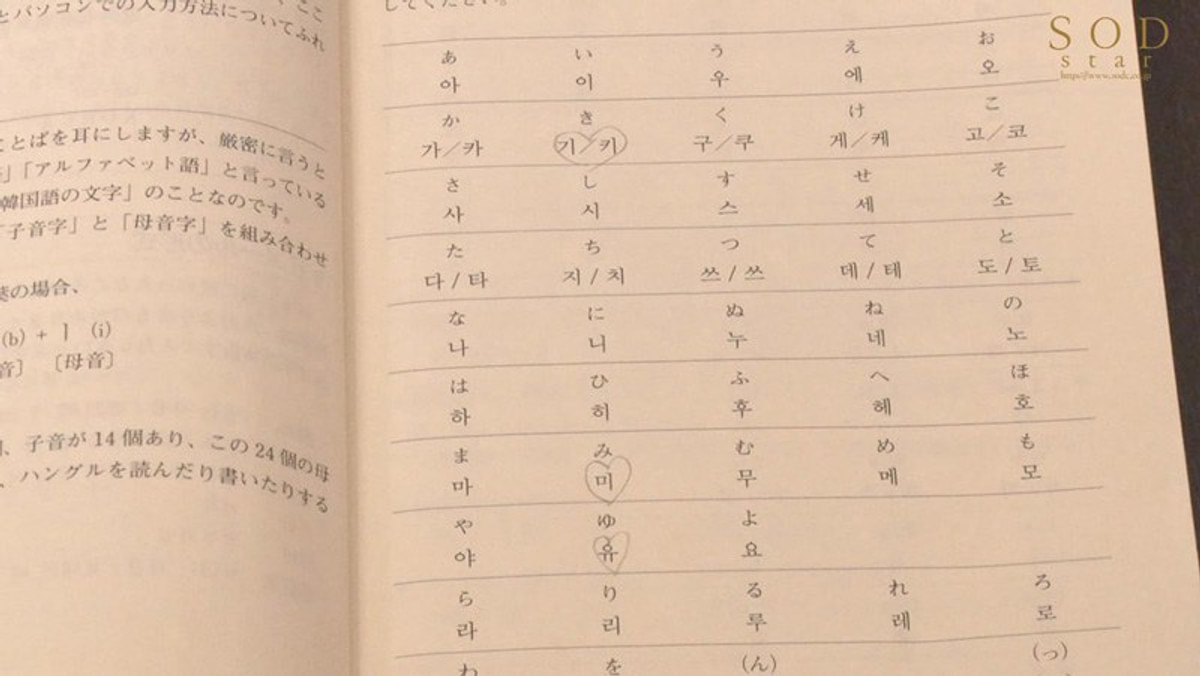 ここ
とパソコンでの入力方法についてふれ
ことばを耳にしますが、厳密に言うと
」「アルファベット語」と言っている
韓国語の文字」のことなのです。
「子音字」と「母音字」を組み合わせ
の場合、
(b) + ㅣ (i)
音〕 〔母音〕
、子音が 14 個あり、この 24 個の母
、ハングルを読んだり書いたりする
してください。
あ い う え お
아 이 우 에 오
か き く け こ
가/카 기/키 구/쿠 게/케 고/코
さ し す せ そ
사 시 스 세 소
た ち つ て と
다/타 지/치 쓰/쓰 데/테 도/토
な に ぬ ね の
나 니 누 네 노
は ひ ふ へ ほ
하 히 후 헤 호
ま み む め も
마 미 무 메 모
や ゆ よ
야 유 요
ら り る れ ろ
라 리 루 레 로
わ を (ん) (っ)
SOD
star
http://www.sod.co.jp